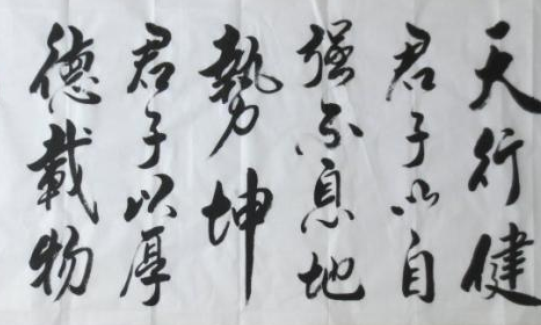 天行健
君子以自
强不息地
勢坤
君子以厚
德載物